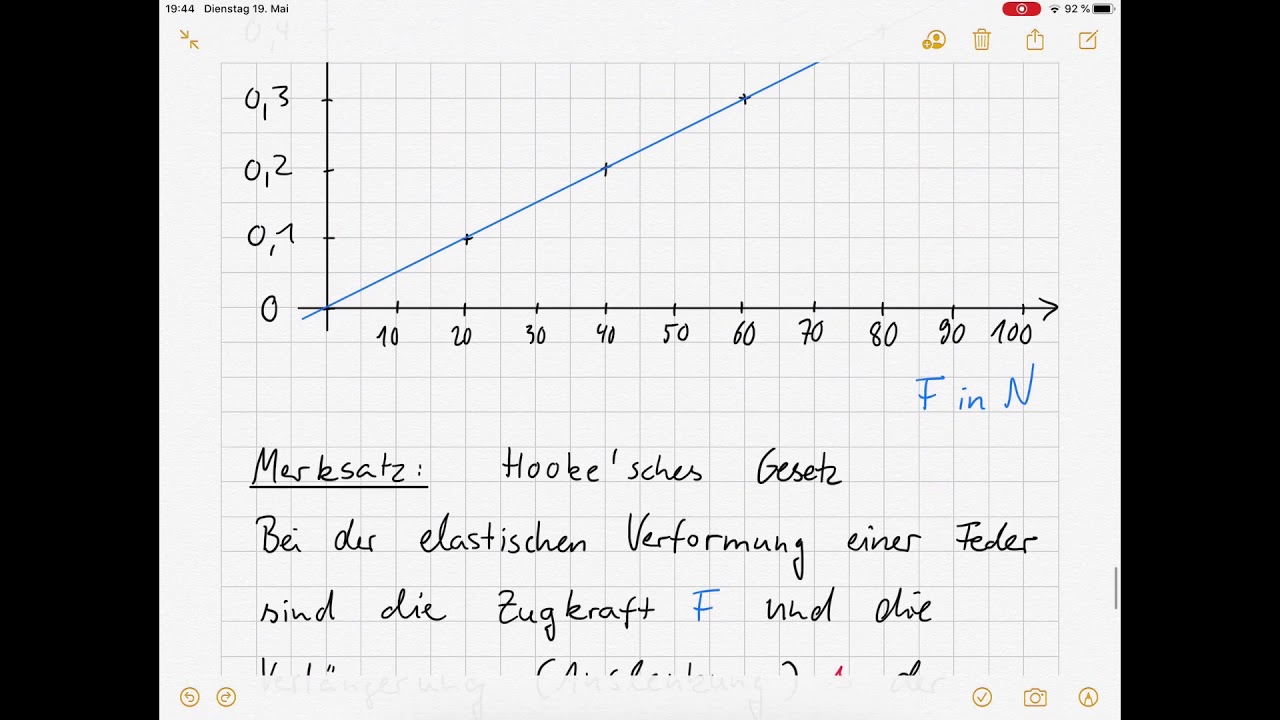 19:44 Dienstag 19. Mai 92 %
0,4
0,3
0,2
0,1
0
10 20 30 40 50 60 70 80 90 100
F in N
Merksatz: Hooke'sches Gesetz
Bei der elastischen Verformung einer Feder
sind die Zugkraft F und die
Verlängerung (Auslenkung) s der